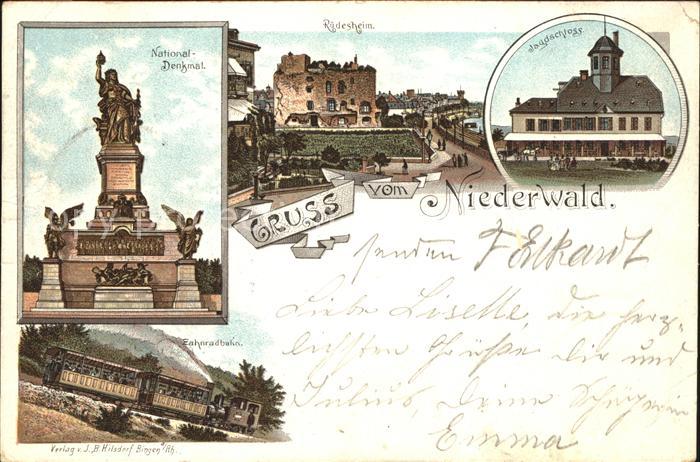 National-
Denkmal.
Rüdesheim.
Jagdschloss
GRUSS
VOM
Niederwald.
senden F Elkhardt
Liebe Liselle, die herz-
lichsten Grüße dir und
Julius, Deine
Emma
Zahnradbahn.
Verlag v. J. B. Hilsdorf Bingen a/Rh.